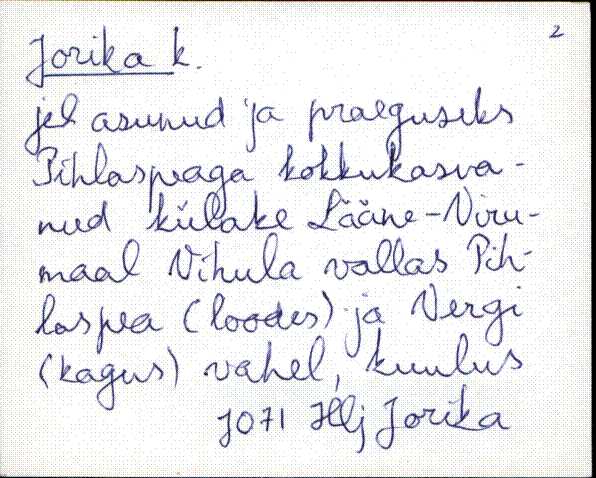 2
Jorika k.
jel asunud ja praeguseks
Pihlaspeaga kokkukasva-
nud külake Lääne-Viru-
maal Vihula vallas Pih-
laspea (loodes) ja Vergi
(kagus) vahel, kuulus
JO71 Hlj Jorika